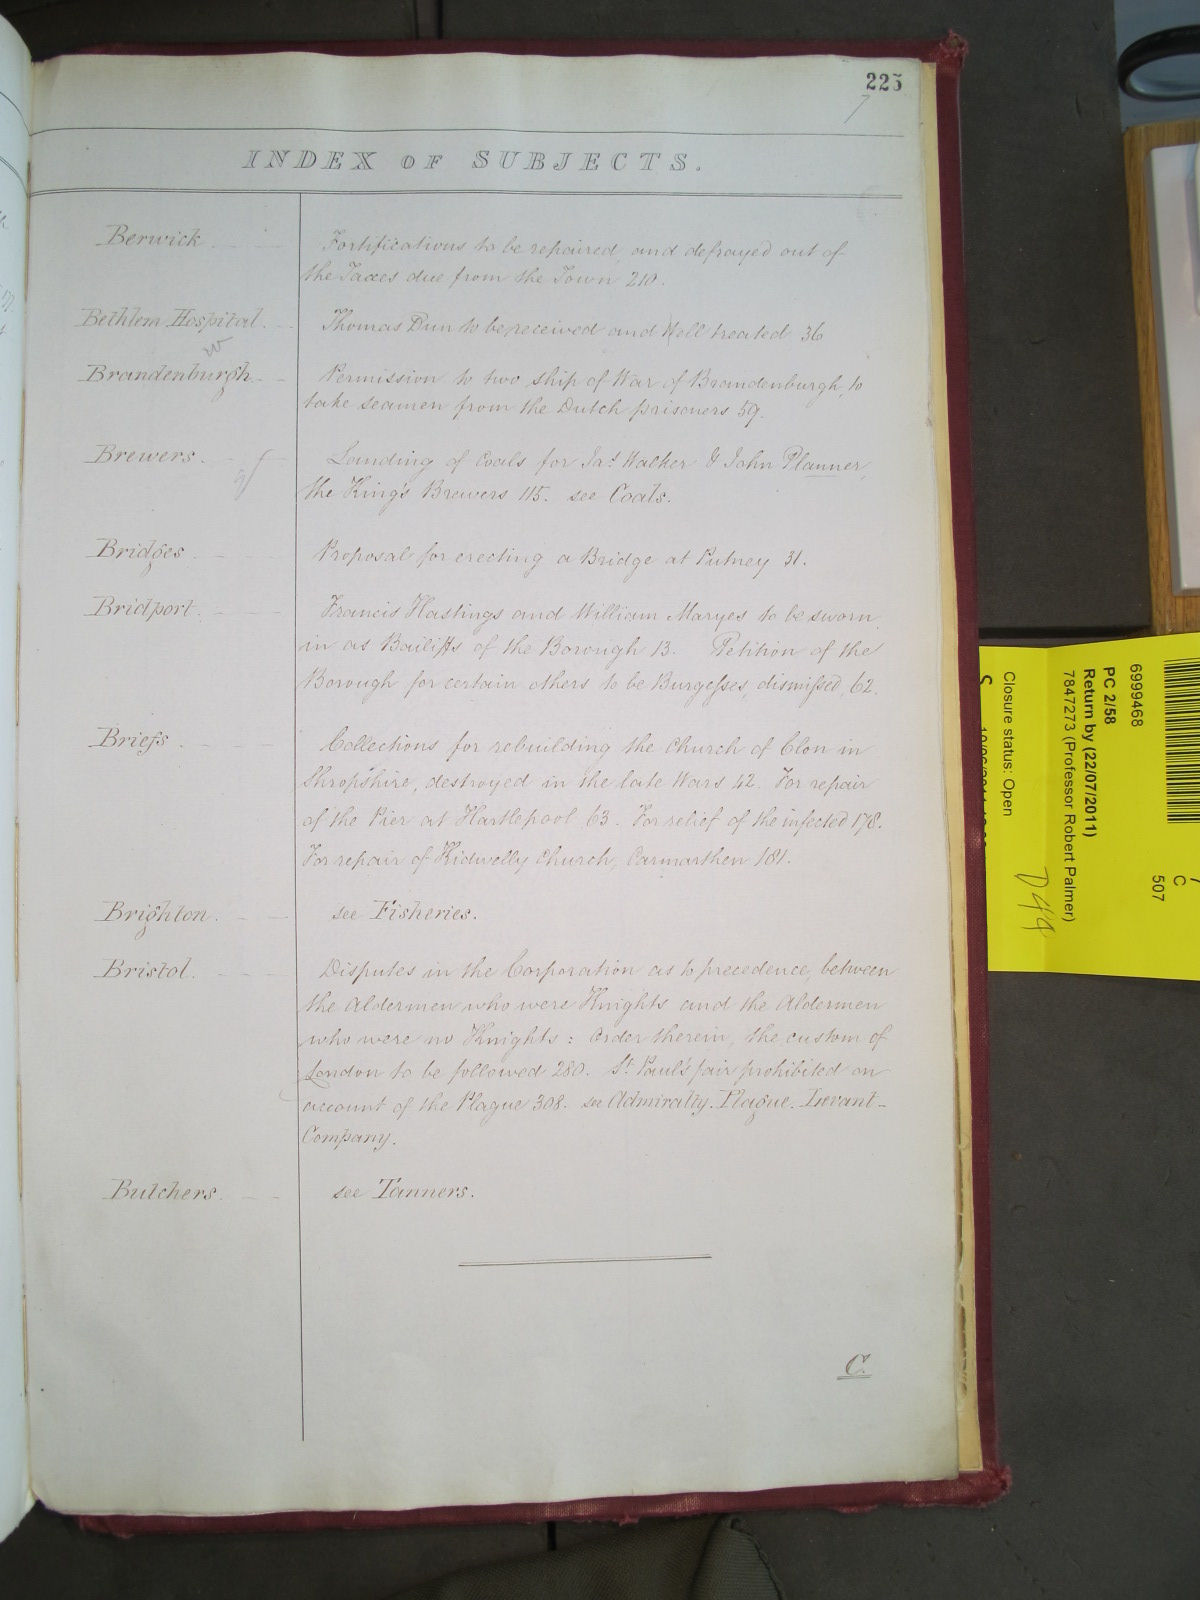 225
7
INDEX OF SUBJECTS.
Berwick
Fortifications to be repaired, and defrayed out of
the Taxes due from the Town 210.
Bethlem Hospital.
Thomas Dun to be received and Well treated 36
Brandenburgh
Permission to two ship of War of Brandenburgh, to
take seamen from the Dutch prisoners 59.
Brewers.
Landing of Coals for Jas. Walker & John Planner,
the King's Brewers 115. see Coals.
Bridges
Proposal for erecting a Bridge at Putney 31.
Bridport.
Francis Hastings and William Maryes to be sworn
in as Bailiffs of the Borough 13. Petition of the
Borough for certain others to be Burgesses, dismissed, 62.
Briefs
Collections for rebuilding the Church of Clon in
Shropshire, destroyed in the late Wars 42. For repair
of the Pier at Hartlepool 63. For relief of the infected 178.
For repair of Kidwelly Church, Carmarthen 181.
Brighton.
see Fisheries.
Bristol.
Disputes in the Corporation as to precedence, between
the Aldermen who were Knights and the Aldermen
who were no Knights: Order therein, the custom of
London to be followed 280. St. Paul's fair prohibited on
account of the Plague 308. see Admiralty. Plague. Levant-
Company.
Butchers.
see Tanners.
C.
6999468
PC 2/58
Return by (22/07/2011)
7847273 (Professor Robert Palmer)
Closure status: Open
D49
C
507